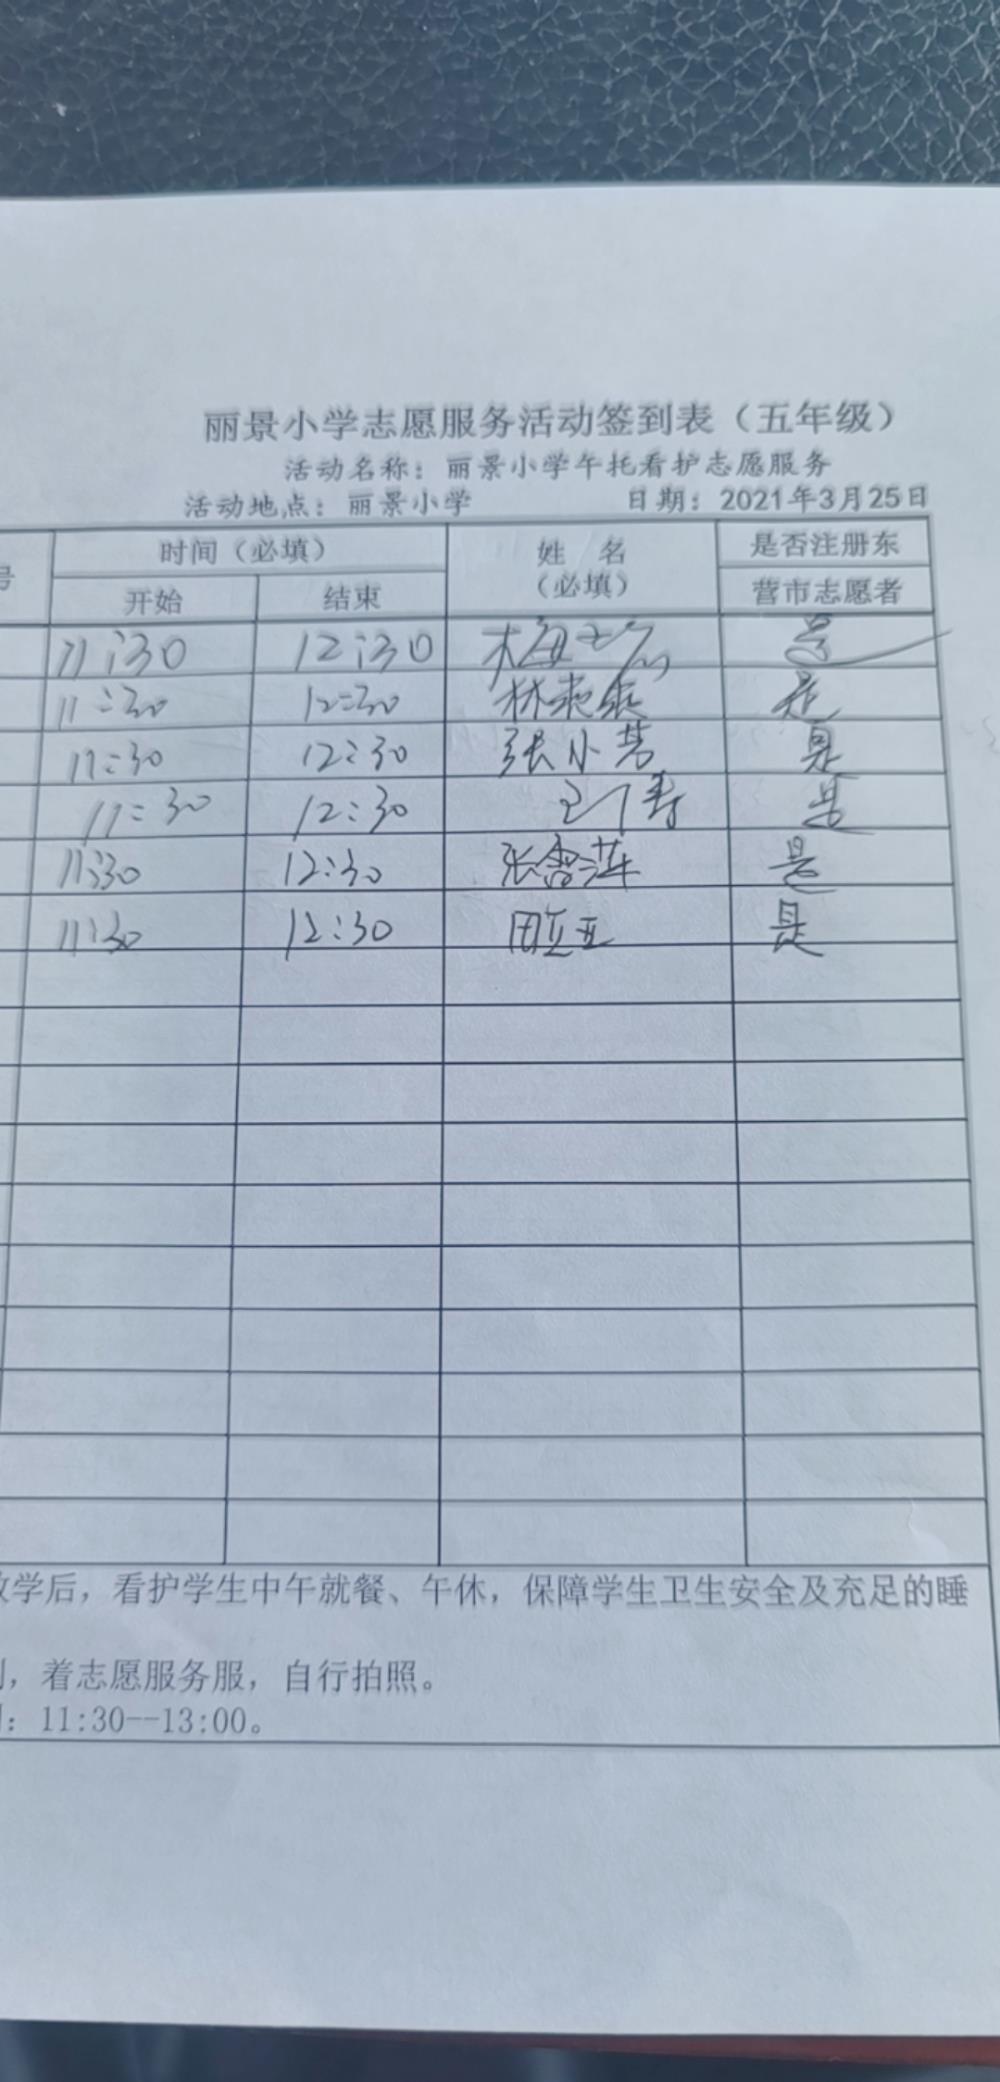 丽景小学志愿服务活动签到表（五年级）
活动名称：丽景小学午托看护志愿服务
活动地点：丽景小学 日期：2021年3月25日
号 时间（必填） 姓 名（必填） 是否注册东营市志愿者
开始 结束
11:30 12:30 梅 是
11:30 12:30 林爽爽 是
11:30 12:30 张小芳 是
11:30 12:30 是
11:30 12:30 张雪莲 是
11:30 12:30 田立亚 是
放学后，看护学生中午就餐、午休，保障学生卫生安全及充足的睡
，着志愿服务服，自行拍照。
：11:30--13:00。